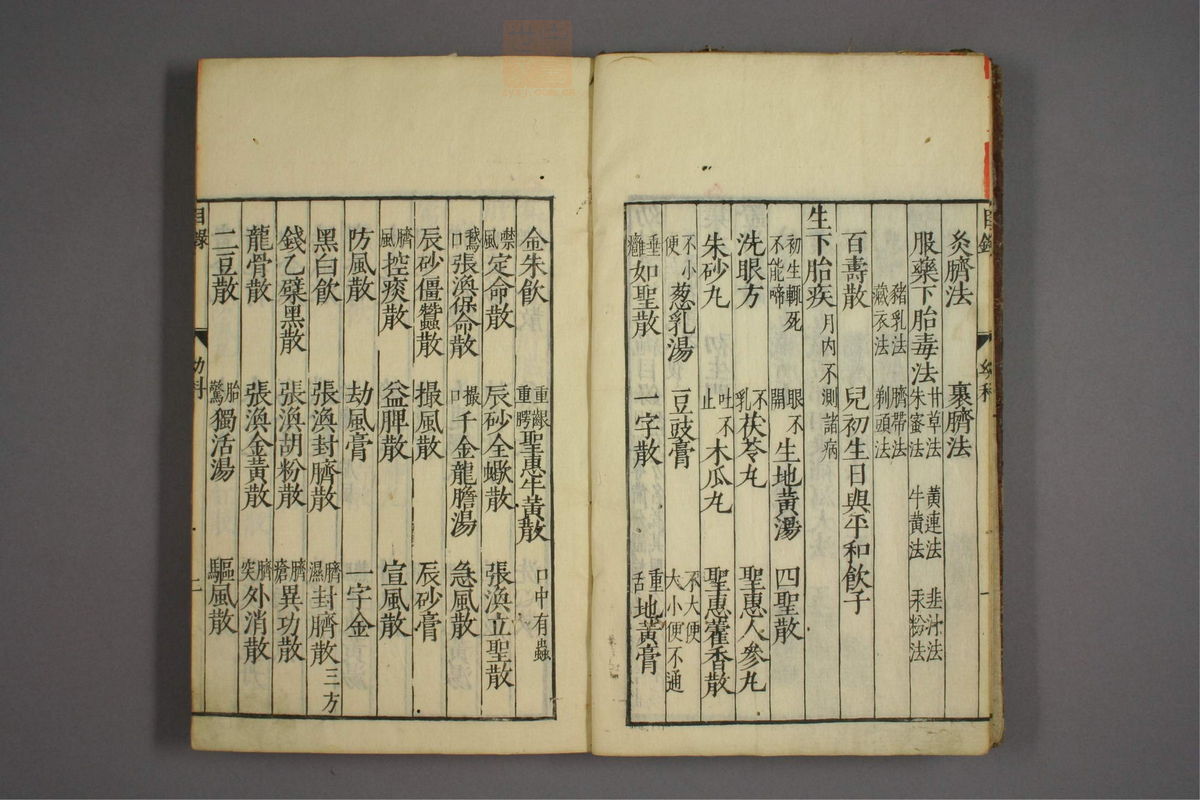 灸臍法　裹臍法
服藥下胎毒法　甘草法　黃連法　韭汁法　朱蜜法　牛黃法　汞粉法
豬乳法　臍帶法　藏衣法　剃頭法
百壽散　兒初生日與平和飲子
生下胎疾　月內不測諸病
初生輒死不能啼　眼不開　生地黃湯　四聖散
洗眼方　不乳　茯苓丸　聖惠人參丸
朱砂丸　吐不止　木瓜丸　聖惠藿香散
不小便　葱乳湯　豆豉膏　不大便　大小便不通
垂癰　如聖散　一字散　重舌　地黃膏
目錄　幼科　一
金朱飲　重齦重腭　聖惠牛黃散　口中有蟲
噤風　定命散　辰砂全蠍散　張渙立聖散
鵞口　張渙保命散　撮口　千金龍膽湯　急風散
辰砂僵蠶散　撮風散　辰砂膏
臍風　控痰散　益脾散　宣風散
防風散　劫風膏　一字金
黑白飲　張渙封臍散　臍濕　封臍散三方
錢乙檗黑散　張渙胡粉散　臍瘡　異功散
龍骨散　張渙金黃散　臍突　外消散
二豆散　胎驚　獨活湯　驅風散
目錄　幼科　二